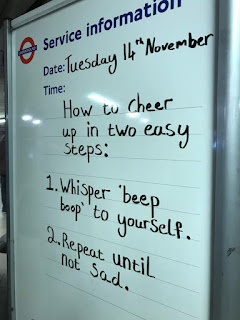 Service information
Date: Tuesday 14th November
Time:
How to cheer
up in two easy
steps:
1. Whisper 'beep
boop' to yourself.
2. Repeat until
not sad.